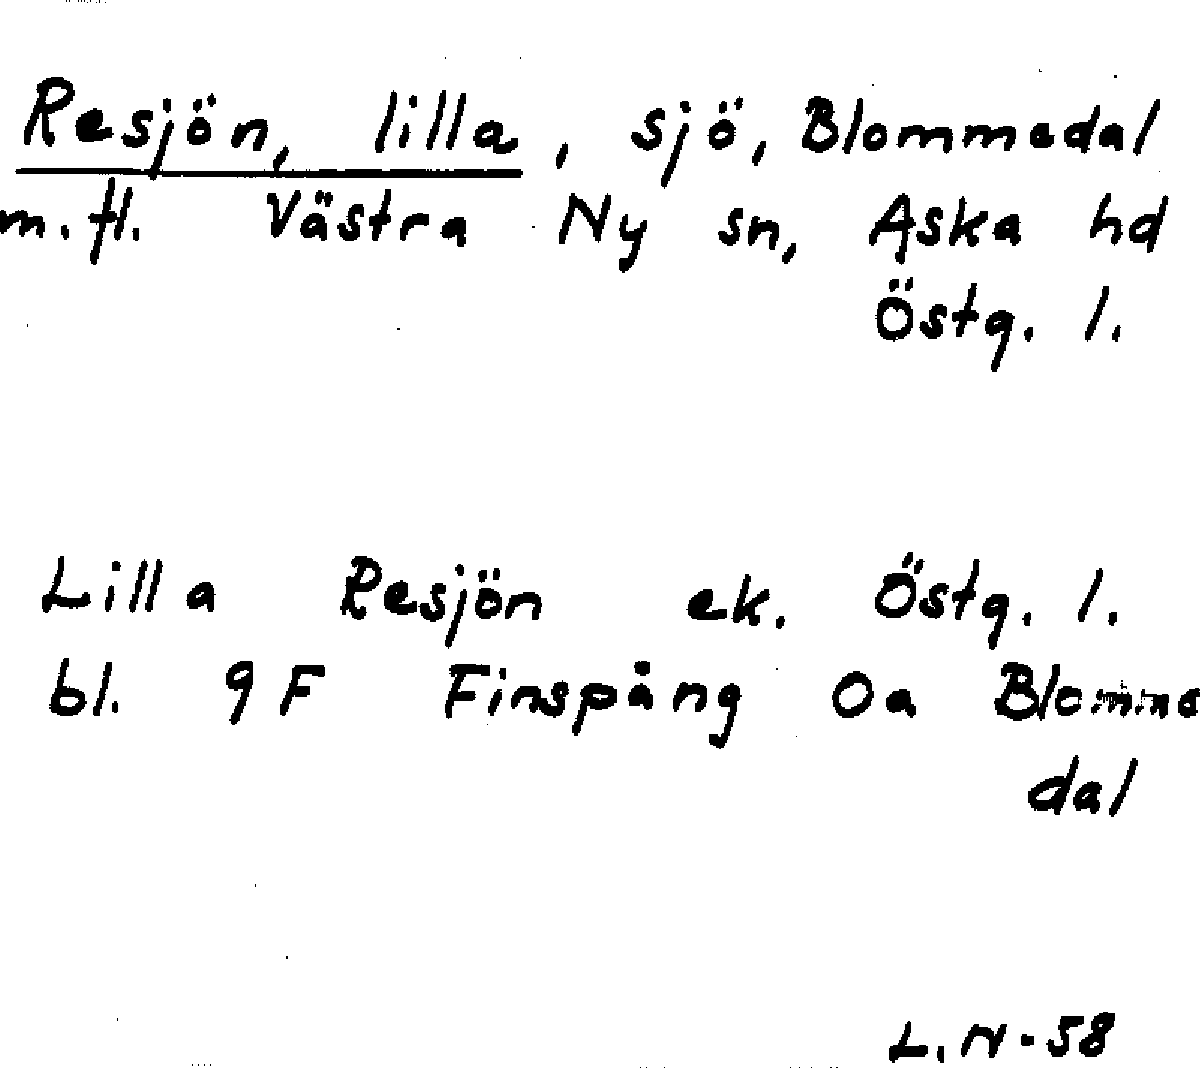 Resjön, lilla, sjö, Blommedal
m. fl. Västra Ny sn, Aska hd
Östg. l.
Lilla Resjön ek. Östg. l.
bl. 9F Finspång Oa Blomme
dal
L. N - 58